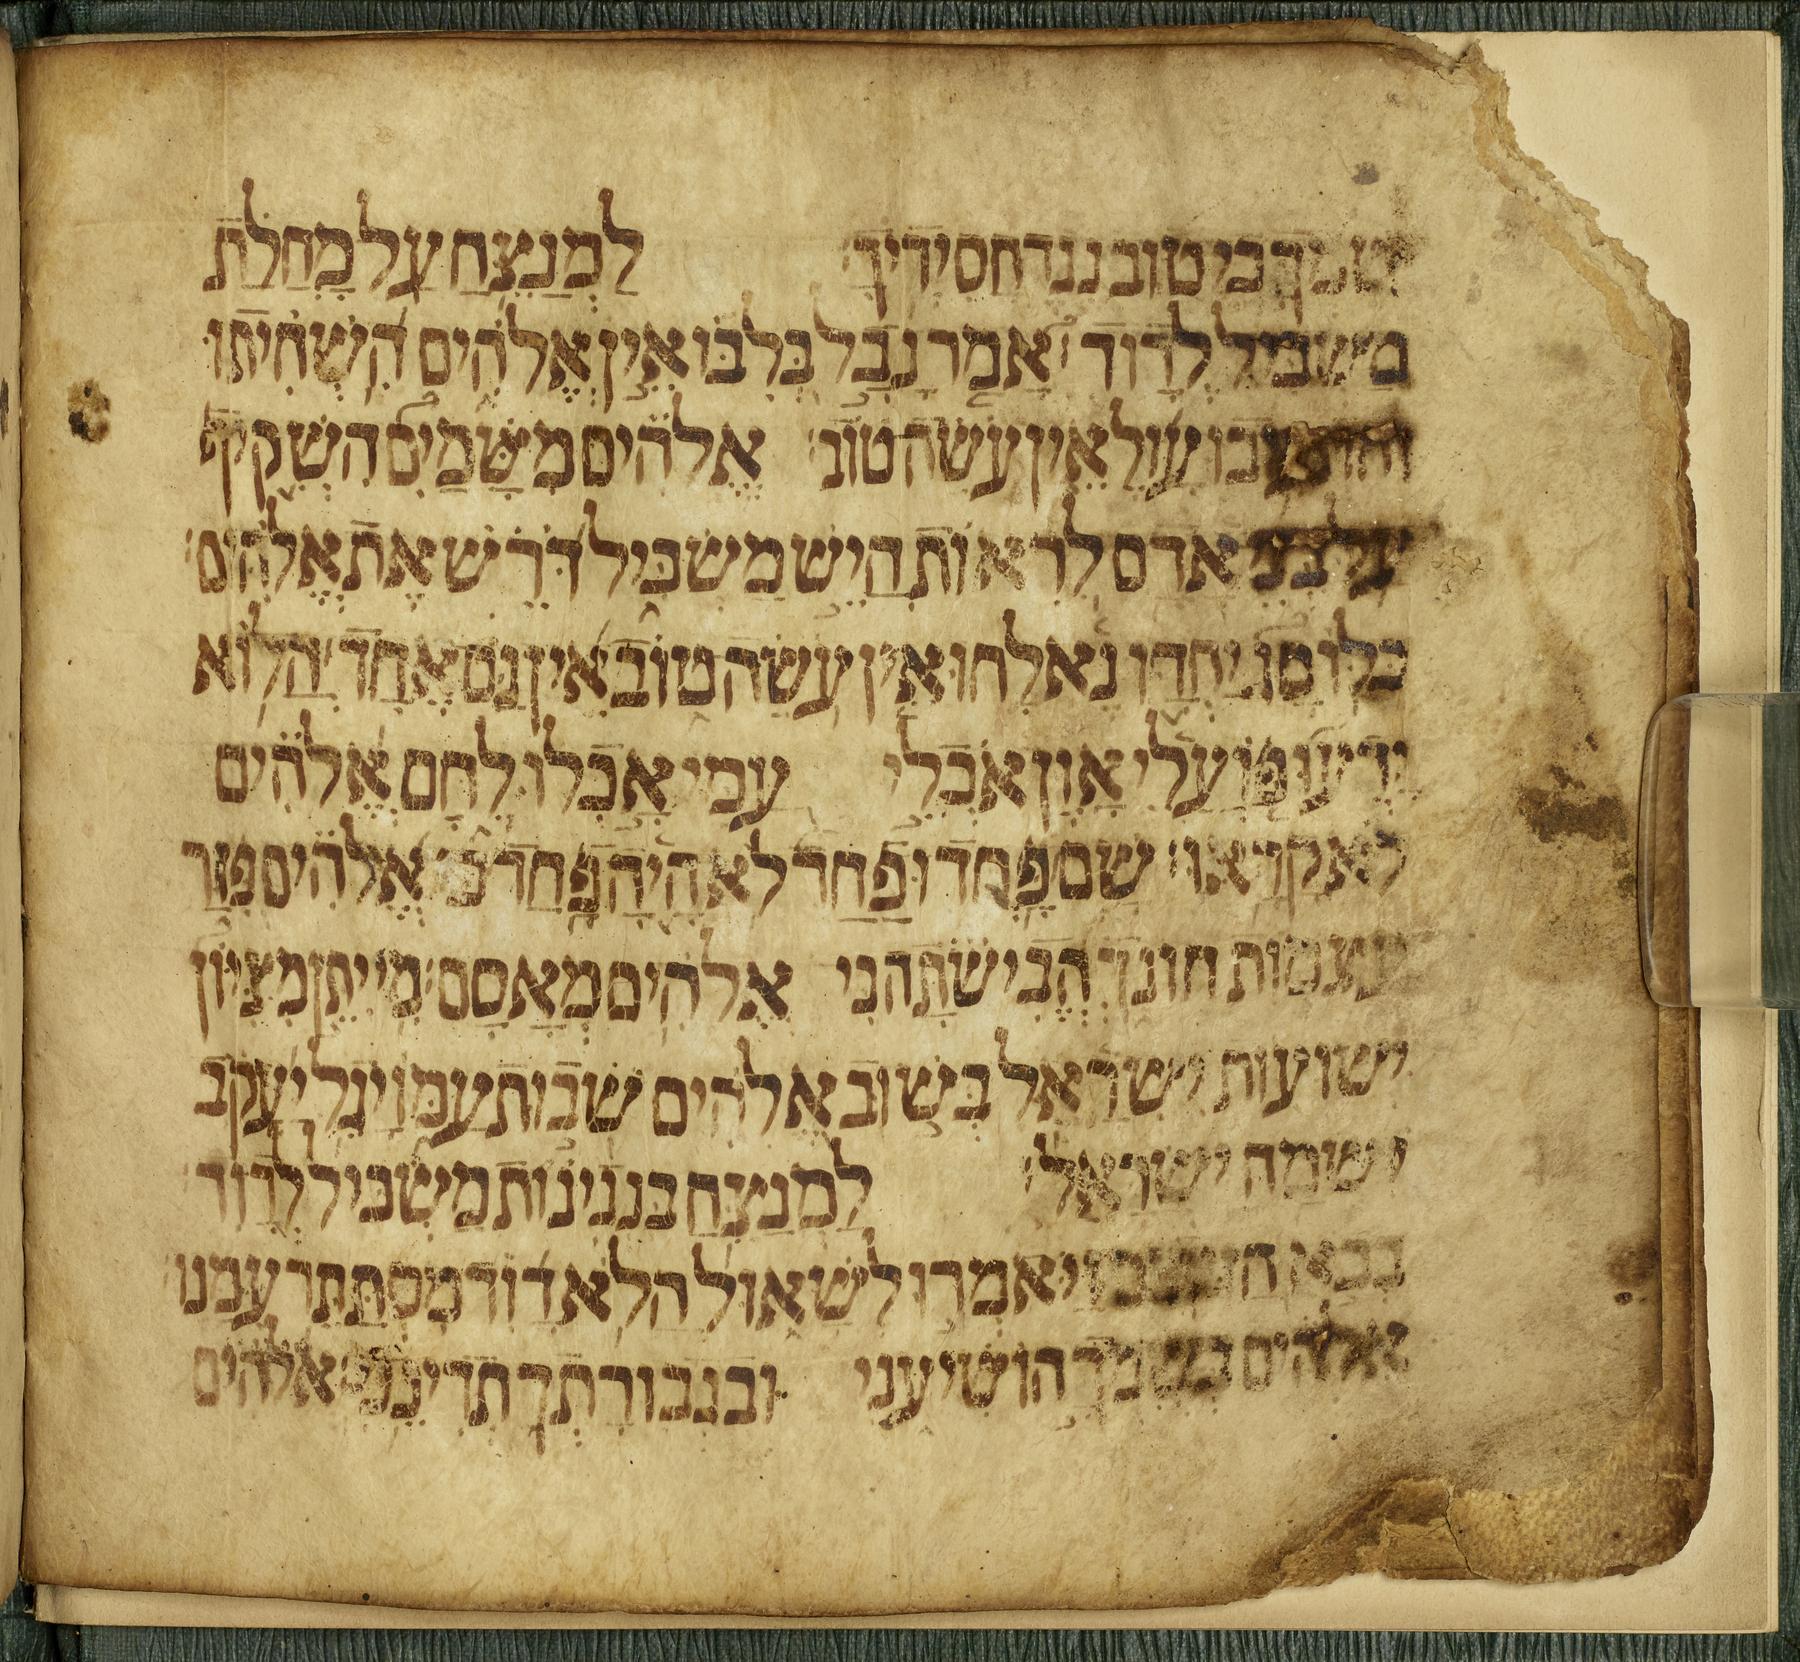 שמך כי טוב נגד חסידיך לַמְנַצֵּחַ עַל מָחֲלַת
משכיל לְדָוִד אָמַר נָבָל בְּלִבּוֹ אֵין אֱלֹהִים הִשְׁחִיתוּ
והתעבו עָוֶל אֵין עֹשֵׂה טוֹב אֱלֹהִים מִשָּׁמַיִם הִשְׁקִיף
על בני אָדָם לִרְאוֹת הֲיֵשׁ מַשְׂכִּיל דֹּרֵשׁ אֶת אֱלֹהִים
כֻּלּוֹ סָג יַחְדָּו נֶאֱלָחוּ אֵין עֹשֵׂה טוֹב אֵין גַּם אֶחָד הֲלוֹא
יָדְעוּ פֹּעֲלֵי אָוֶן אֹכְלֵי עַמִּי אָכְלוּ לֶחֶם אֱלֹהִים
לא קָרָאוּ שָׁם פָּחֲדוּ פַחַד לֹא הָיָה פָחַד כִּי אֱלֹהִים פִּזַּר
עצמות חונך הֱבִישֹׁתָה כִּי אֱלֹהִים מְאָסָם מִי יִתֵּן מִצִּיּוֹן
ישועות ישראל בְּשׁוּב אֱלֹהִים שְׁבוּת עַמּוֹ יָגֵל יַעֲקֹב
ישמח ישראל לַמְנַצֵּחַ בִּנְגִינוֹת מַשְׂכִּיל לְדָוִד
בבוא הזיפים וַיֹּאמְרוּ לְשָׁאוּל הֲלֹא דָוִד מִסְתַּתֵּר עִמָּנוּ
אלהים בְּשִׁמְךָ הוֹשִׁיעֵנִי וּבִגְבוּרָתְךָ תְדִינֵנִי אֱלֹהִים